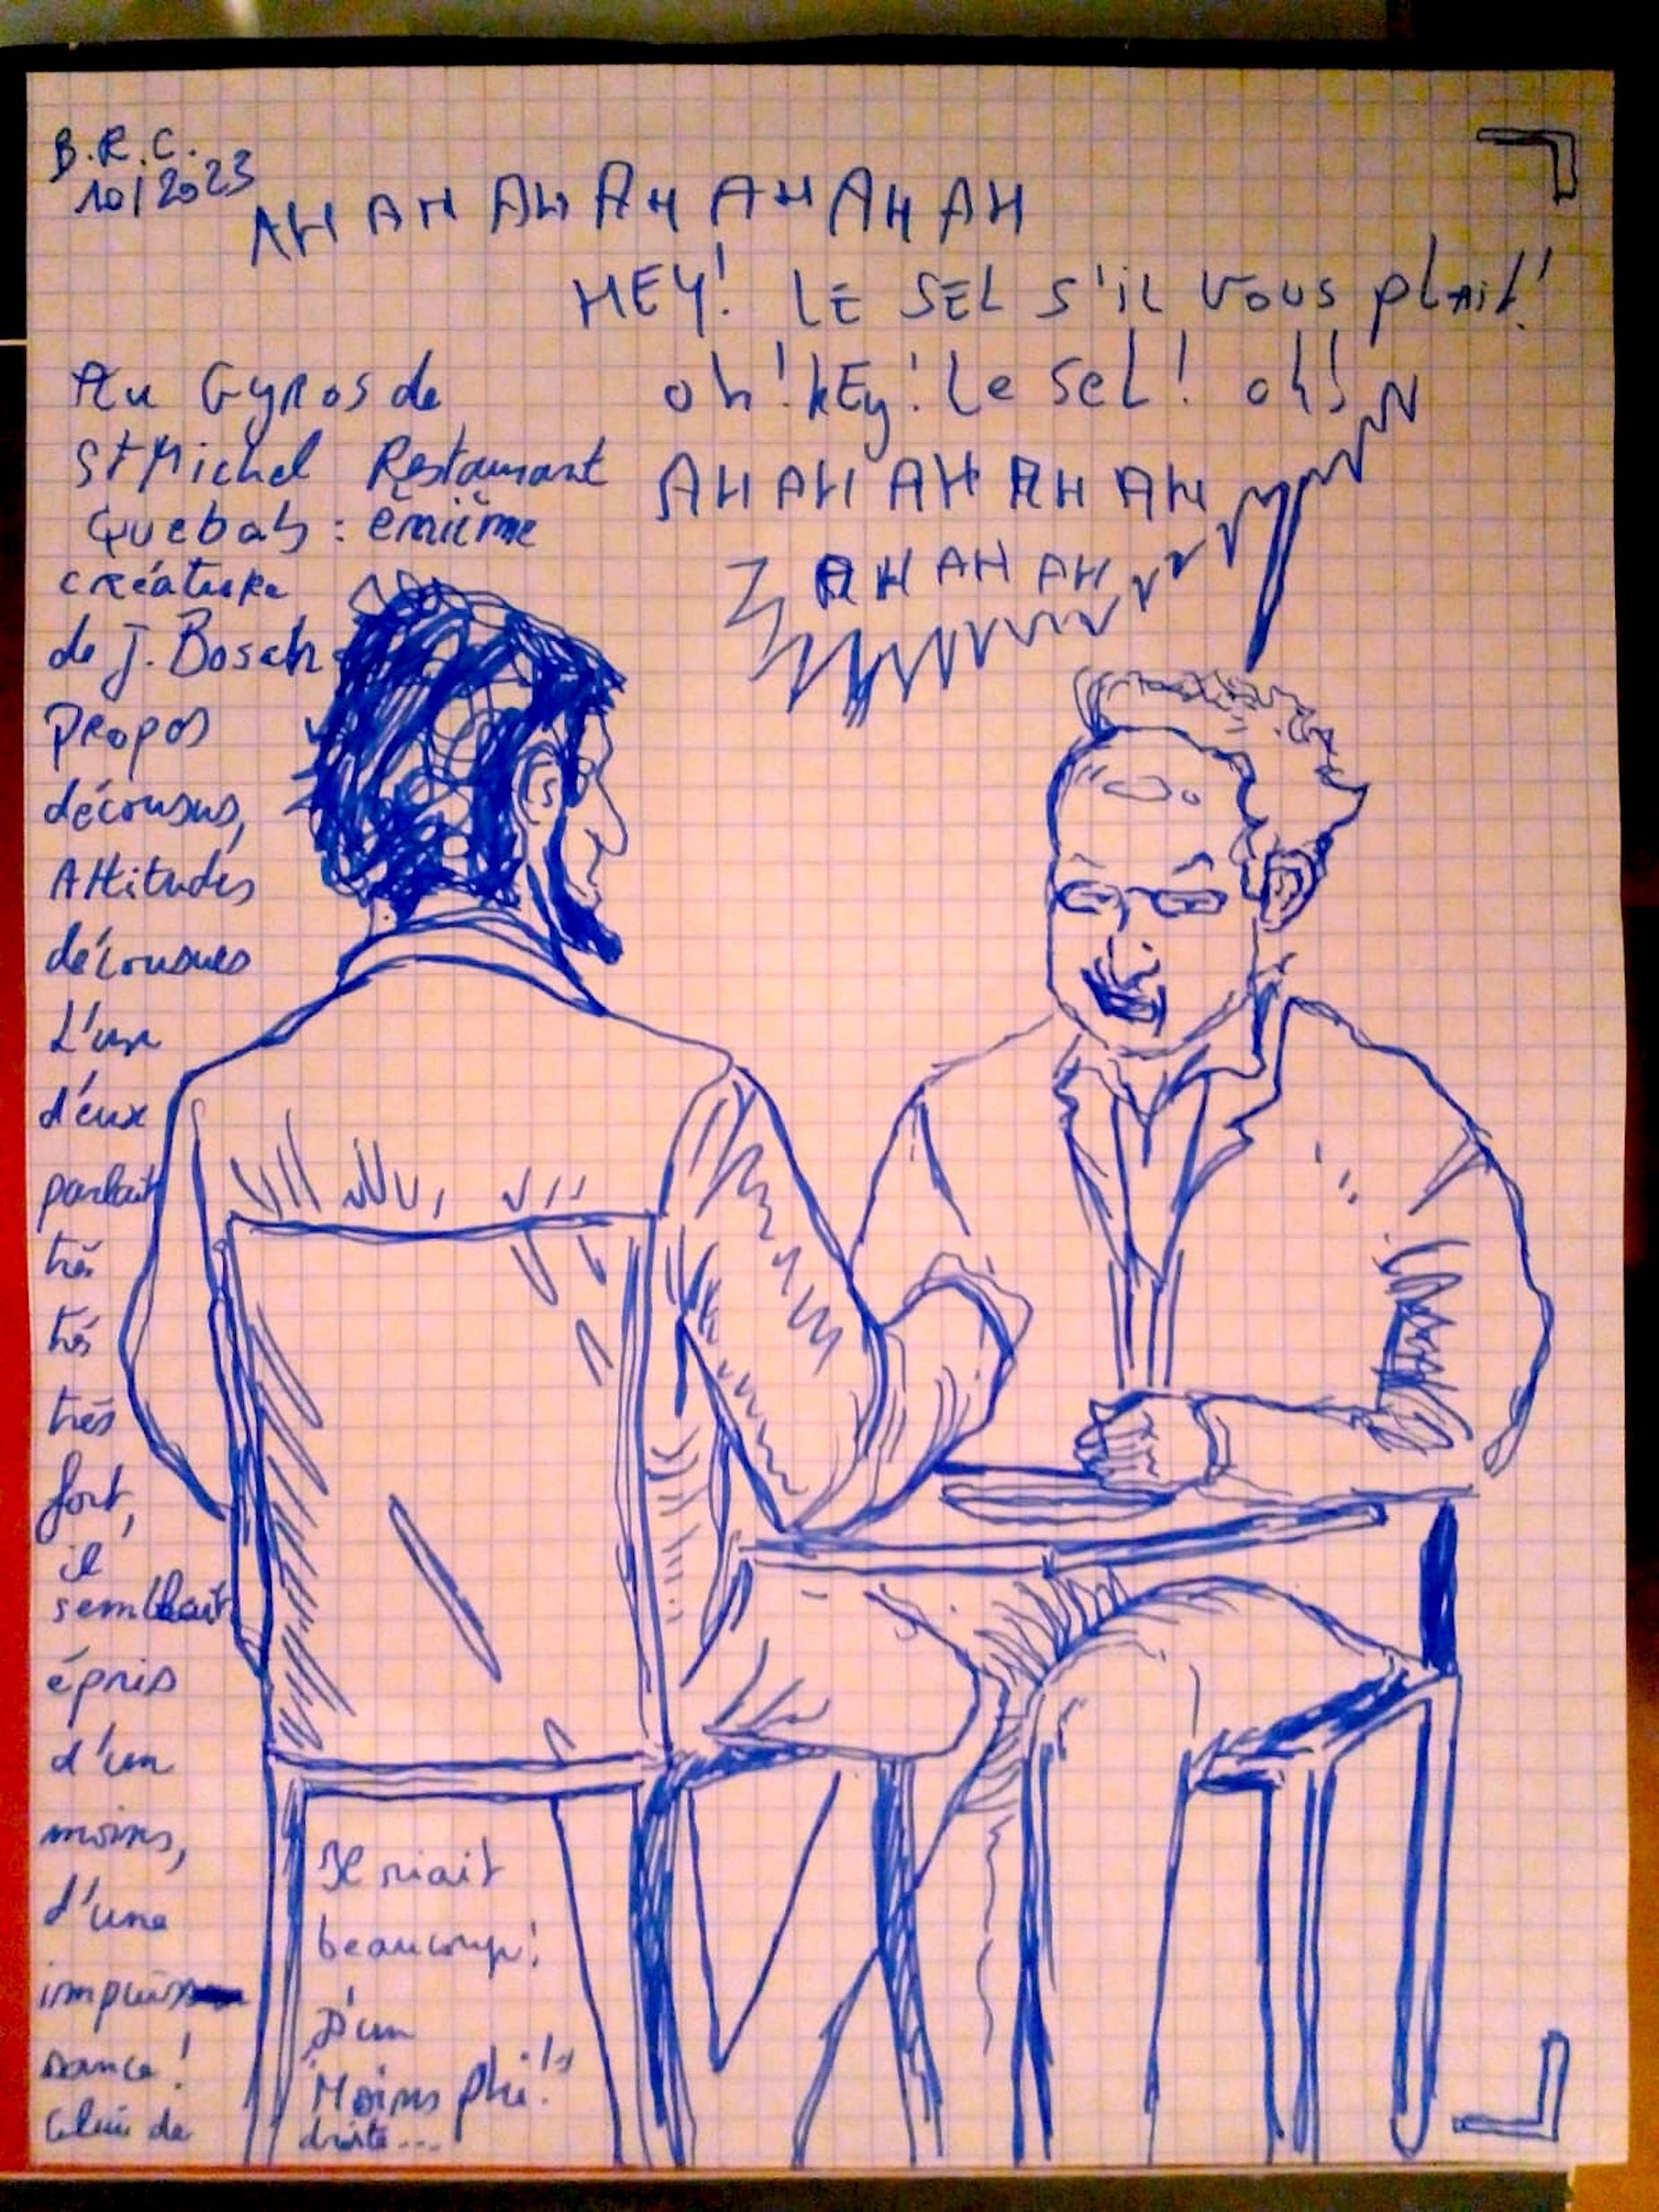 B.R.C.
10/2023
AH AH AH AH AH AH AH
HEY! LE SEL S'iL VOUS plait!
oh! hEy! Le SeL! oh!
AH AH AH AH AH
AH AH AH
Au Gyros de
St Michel Restaurant
Quebab : énième
créature
de J. Bosch
Propos
décousus,
Attitudes
décousues
L'un
d'eux
parlait
très
très
très
fort,
il
semblait
épris
d'un
moins,
d'une
impuis
sance!
Celui de
Il riait
beaucoup!
D'un
Moins
droite...